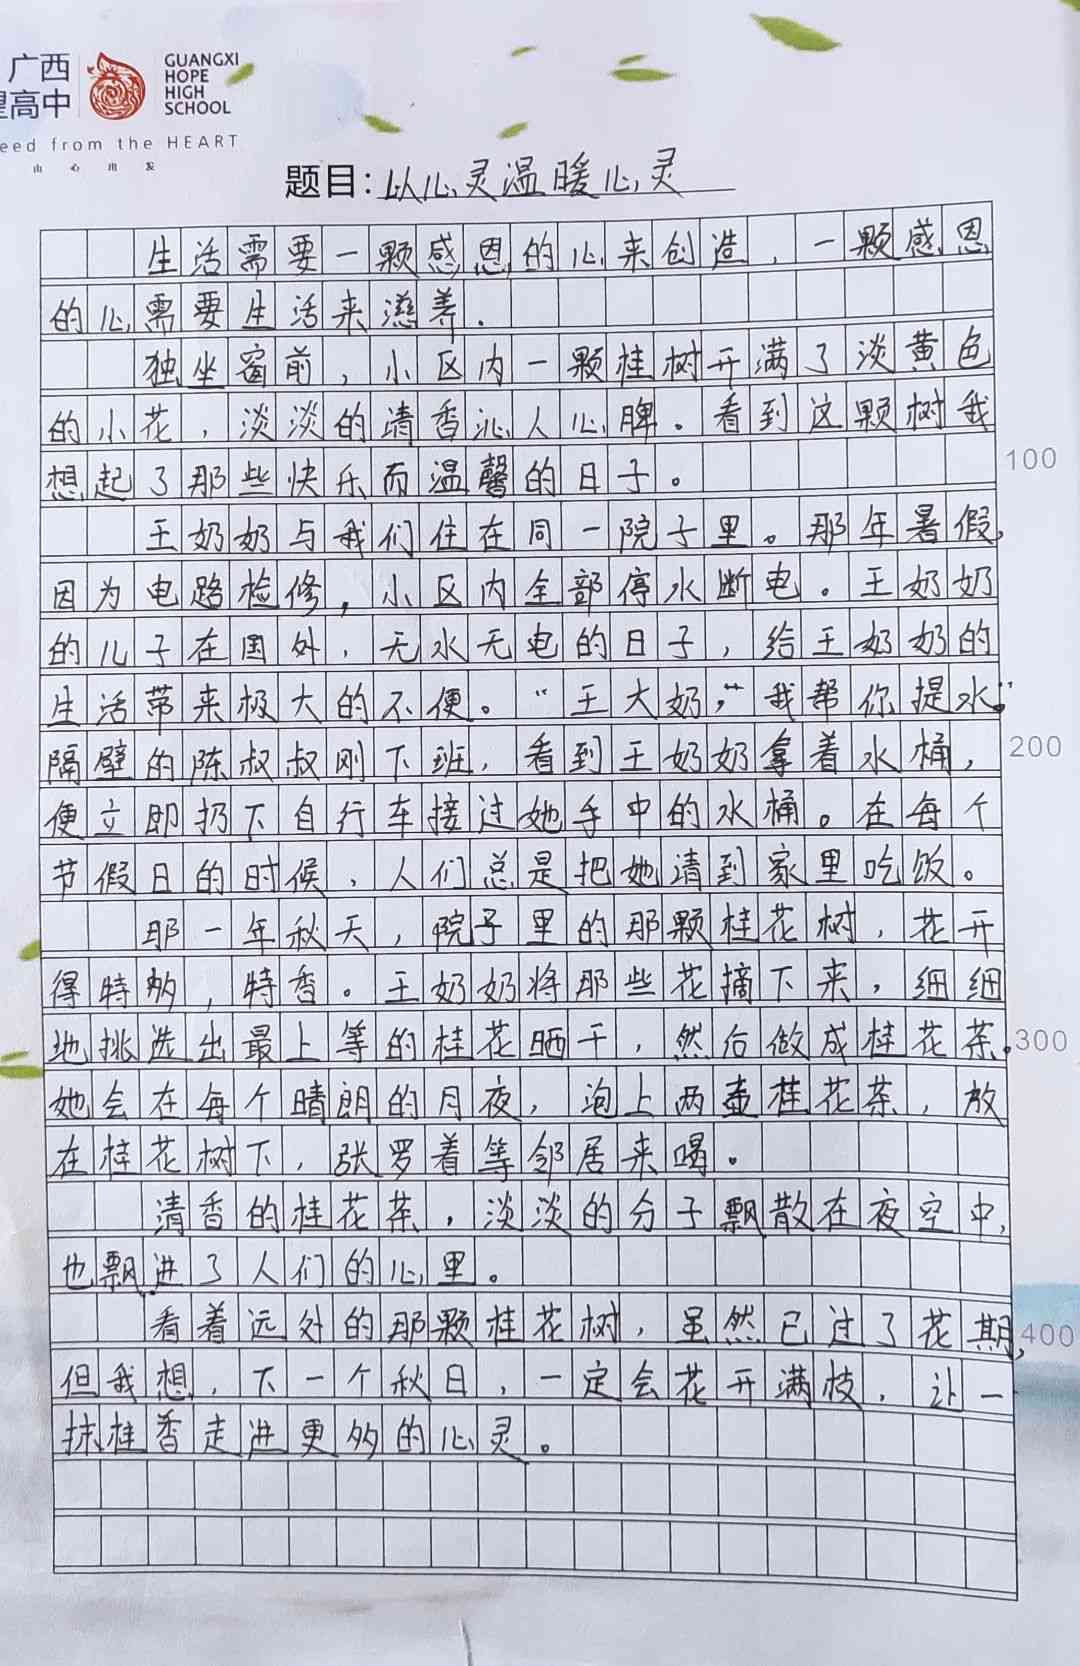 广西
望高中
GUANGXI
HOPE
HIGH
SCHOOL
eed from the HEART
由 心 出 发
题目：以心灵温暖心灵
生活需要一颗感恩的心来创造，一颗感恩
的心需要生活来滋养．
独坐窗前，小区内一颗桂树开满了淡黄色
的小花，淡淡的清香沁人心脾。看到这颗树我
想起了那些快乐而温馨的日子。
100
王奶奶与我们住在同一院子里。那年暑假，
因为电路检修，小区内全部停水断电。王奶奶
的儿子在国外，无水无电的日子，给王奶奶的
生活带来极大的不便。“王大奶，”“我帮你提水。”
隔壁的陈叔叔刚下班，看到王奶奶拿着水桶，
200
便立即扔下自行车接过她手中的水桶。在每个
节假日的时候，人们总是把她请到家里吃饭。
那一年秋天，院子里的那颗桂花树，花开
得特多，特香。王奶奶将那些花摘下来，细细
地挑选出最上等的桂花晒干，然后做成桂花茶。
300
她会在每个晴朗的月夜，泡上两壶桂花茶，放
在桂花树下，张罗着等邻居来喝。
清香的桂花茶，淡淡的分子飘散在夜空中，
也飘进了人们的心里。
看着远处的那颗桂花树，虽然已过了花期，
400
但我想，下一个秋日，一定会花开满枝，让一
抹桂香走进更多的心灵。